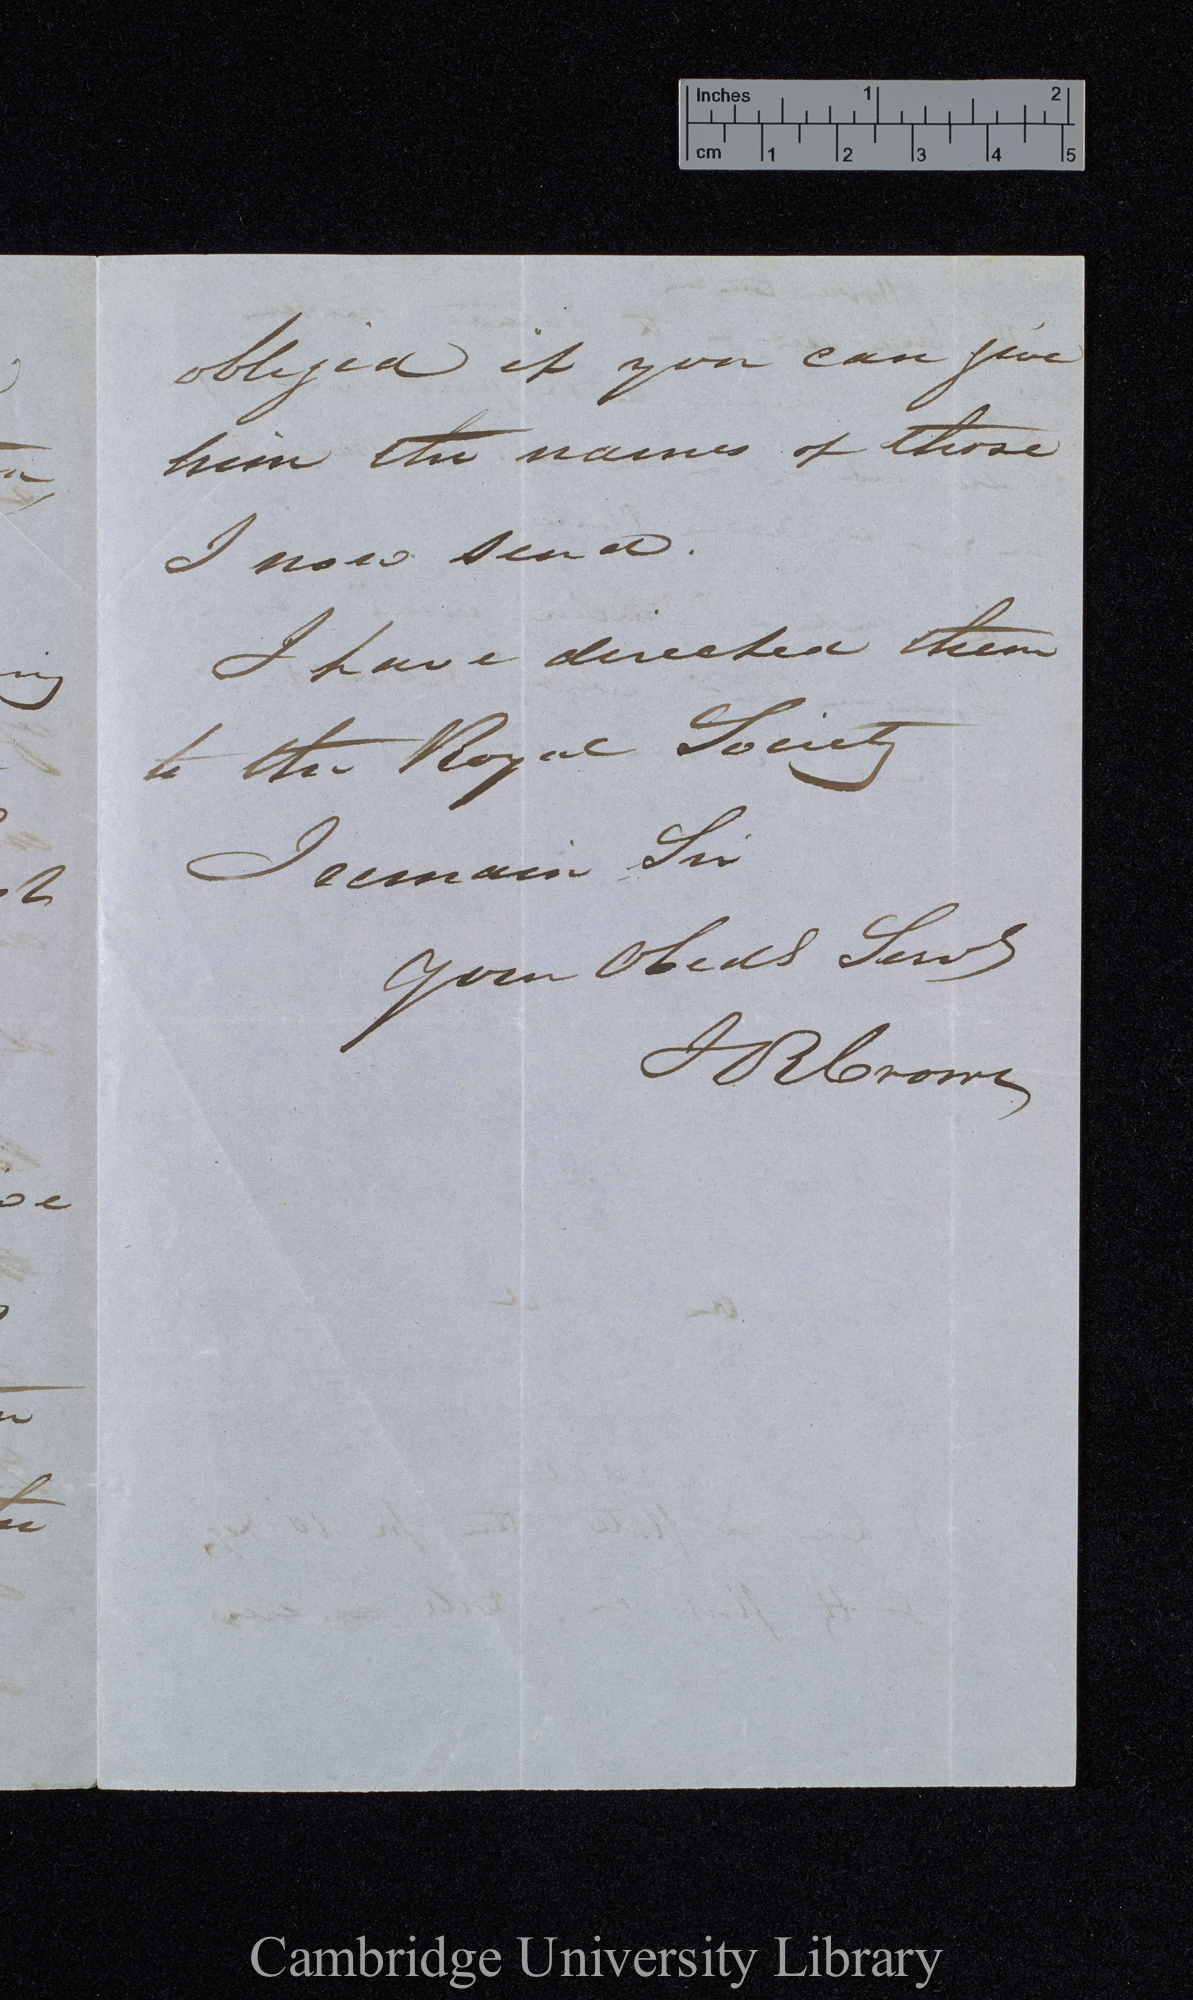 Inches 1 2
cm 1 2 3 4 5
obliged if you can give
him the names of those
I now send.
I have directed them
to the Royal Society
I remain Sir
Your Obedt Servt
J R Crowe
Cambridge University Library